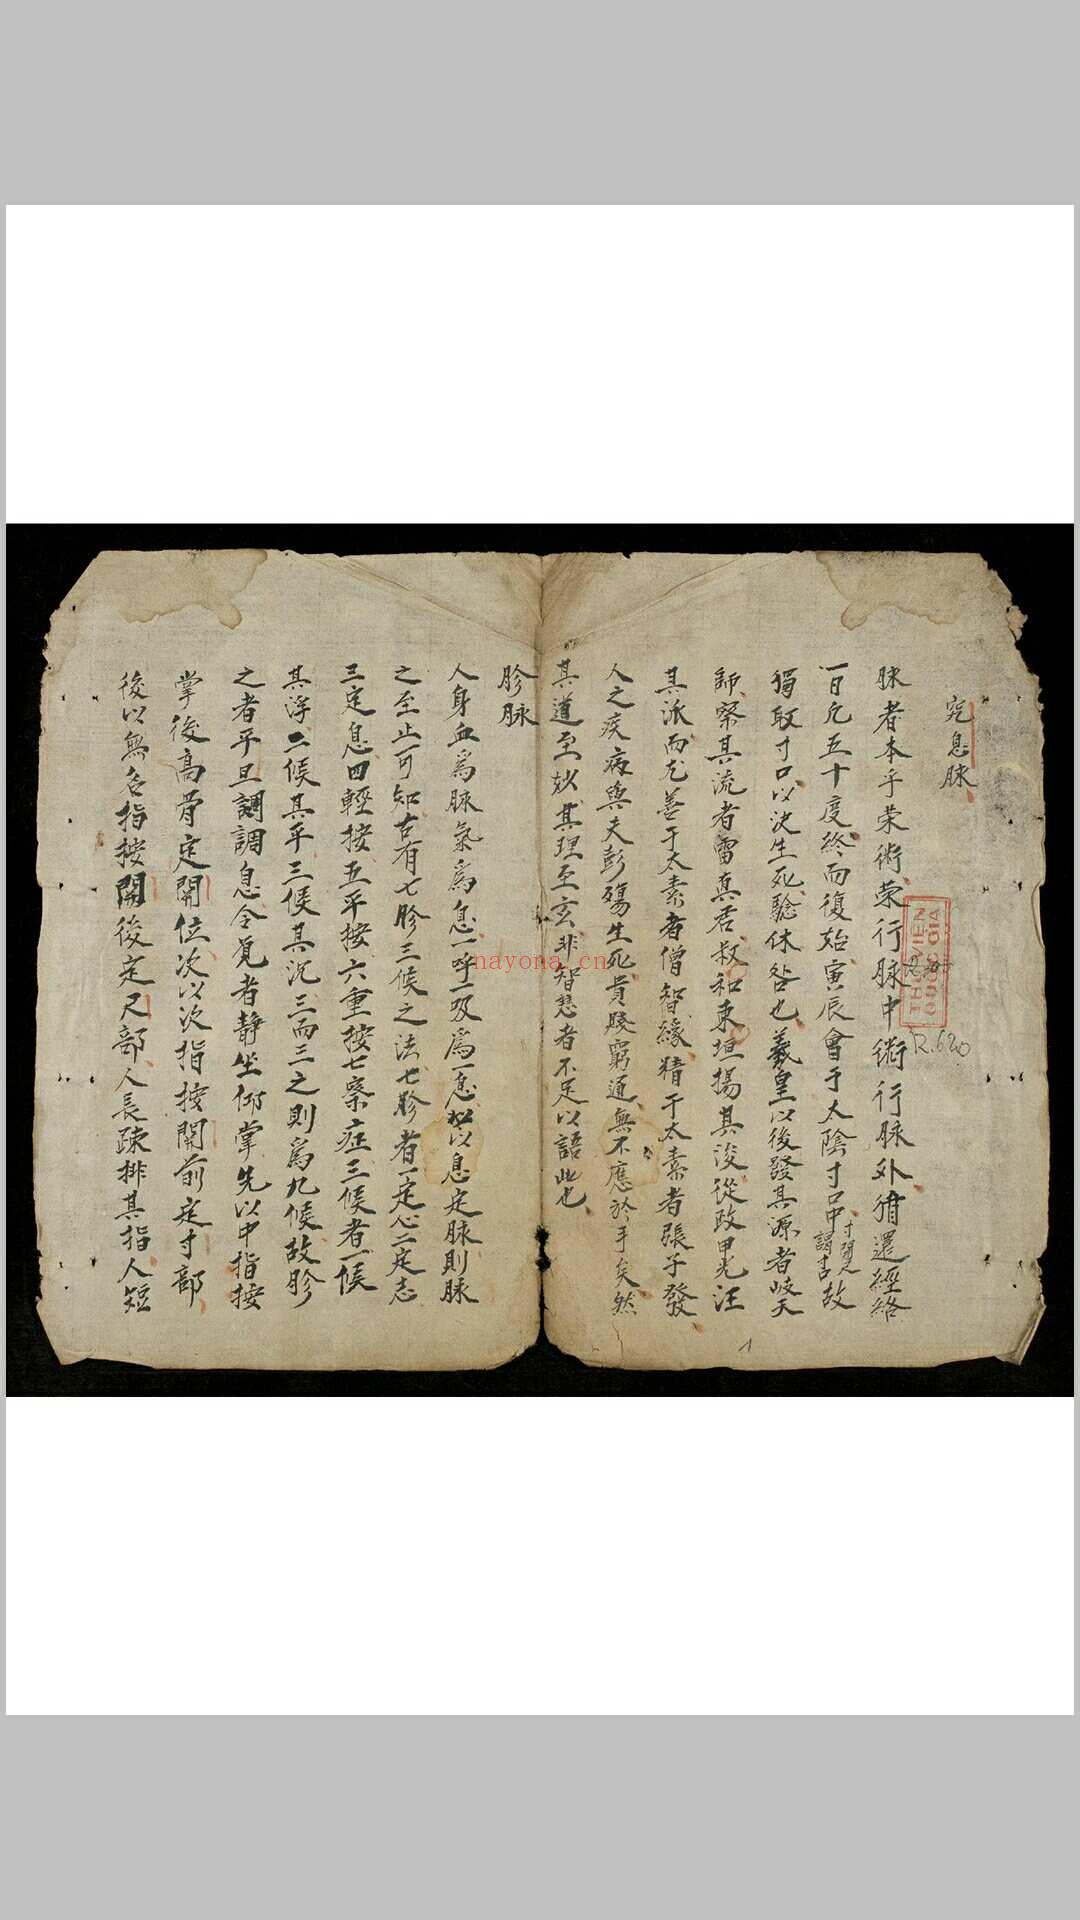 究息脉
脉者本乎荣術荣行脉中術行脉外循還經絡
一日凢五十度終而復始寅辰會于太陰寸口中寸關尺謂吉故
獨取寸口以決生死驗休咎也羲皇以後發其源者岐天
師察其流者雷真君叔和東垣揚其浚從政甲光汪
其派而尤善于太素者僧智緣精于太素者張子發
人之疾病與夫彭殤生死貴賤窮通無不應於手矣然
其道至妙其理至玄非智慧者不足以語此也
胗脉
人身血為脉氣為息一呼一吸為一息以息定脉則脉
之至止可知古有七胗三候之法七胗者一定心二定志
三定息四輕按五平按六重按七察症三候者一候
其浮二候其平三候其沉三而三之則為九候故胗
之者平旦調調息令覓者靜坐仰掌先以中指按
掌後高骨定關位次以次指按關前定寸部
後以無名指按關後定尺部人長疎排其指人短
THƯ VIỆN
QUỐC GIA
R.620
1
nayona.cn